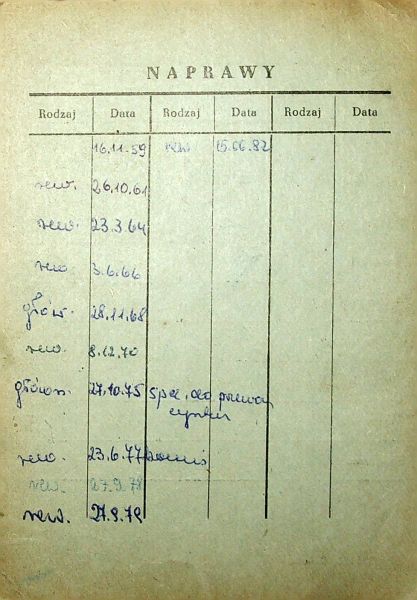 NAPRAWY
Rodzaj Data Rodzaj Data Rodzaj Data
16.11.59 rew. 15.06.82
rew. 26.10.61
rew. 23.3.64
rew. 3.6.66
głów. 28.11.68
rew. 8.12.70
główn. 27.10.75 spec. do przew.
rew. 23.6.77
rew. 27.9.78
rew. 27.9.79